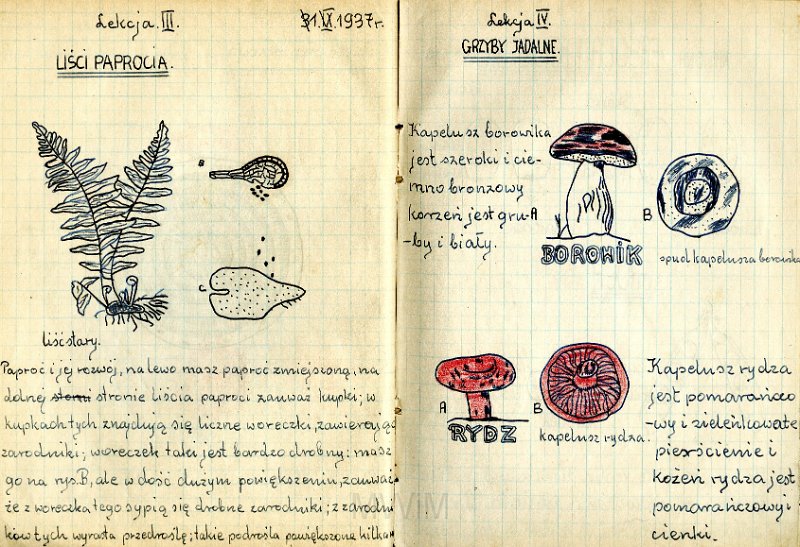 Lekcja. III.
31. IX. 1937r.
LIŚCI PAPROCIA.
B
C
liść stary.
Paproć i jej rozwój, na lewo masz paproć zmiejszoną, na
dolnej stronie liścia paproci zauważ kupki; w
kupkach tych znajdują się liczne woreczki, zawierają
zarodniki; woreczek taki jest bardzo drobny: masz
go na rys. B, ale w dość dużym powiększeniu, zauważ
że z woreczka tego sypią się drobne zarodniki; z zarodni
ków tych wyrasta przedrośle; takie podrośla powiększone kilka
Lekcja IV.
GRZYBY JADALNE.
Kapelusz borowika
jest szeroki i cie-
mno bronzowy
korzeń jest gru-
-by i biały.
A
BOROWIK
B
spud kapelusza borowika
A
RYDZ
B
kapelusz rydza.
Kapelusz rydza
jest pomarańczo
-wy i zieleńkowate
pierścienie i
kożeń rydza jest
pomarańczowy i
cienki.